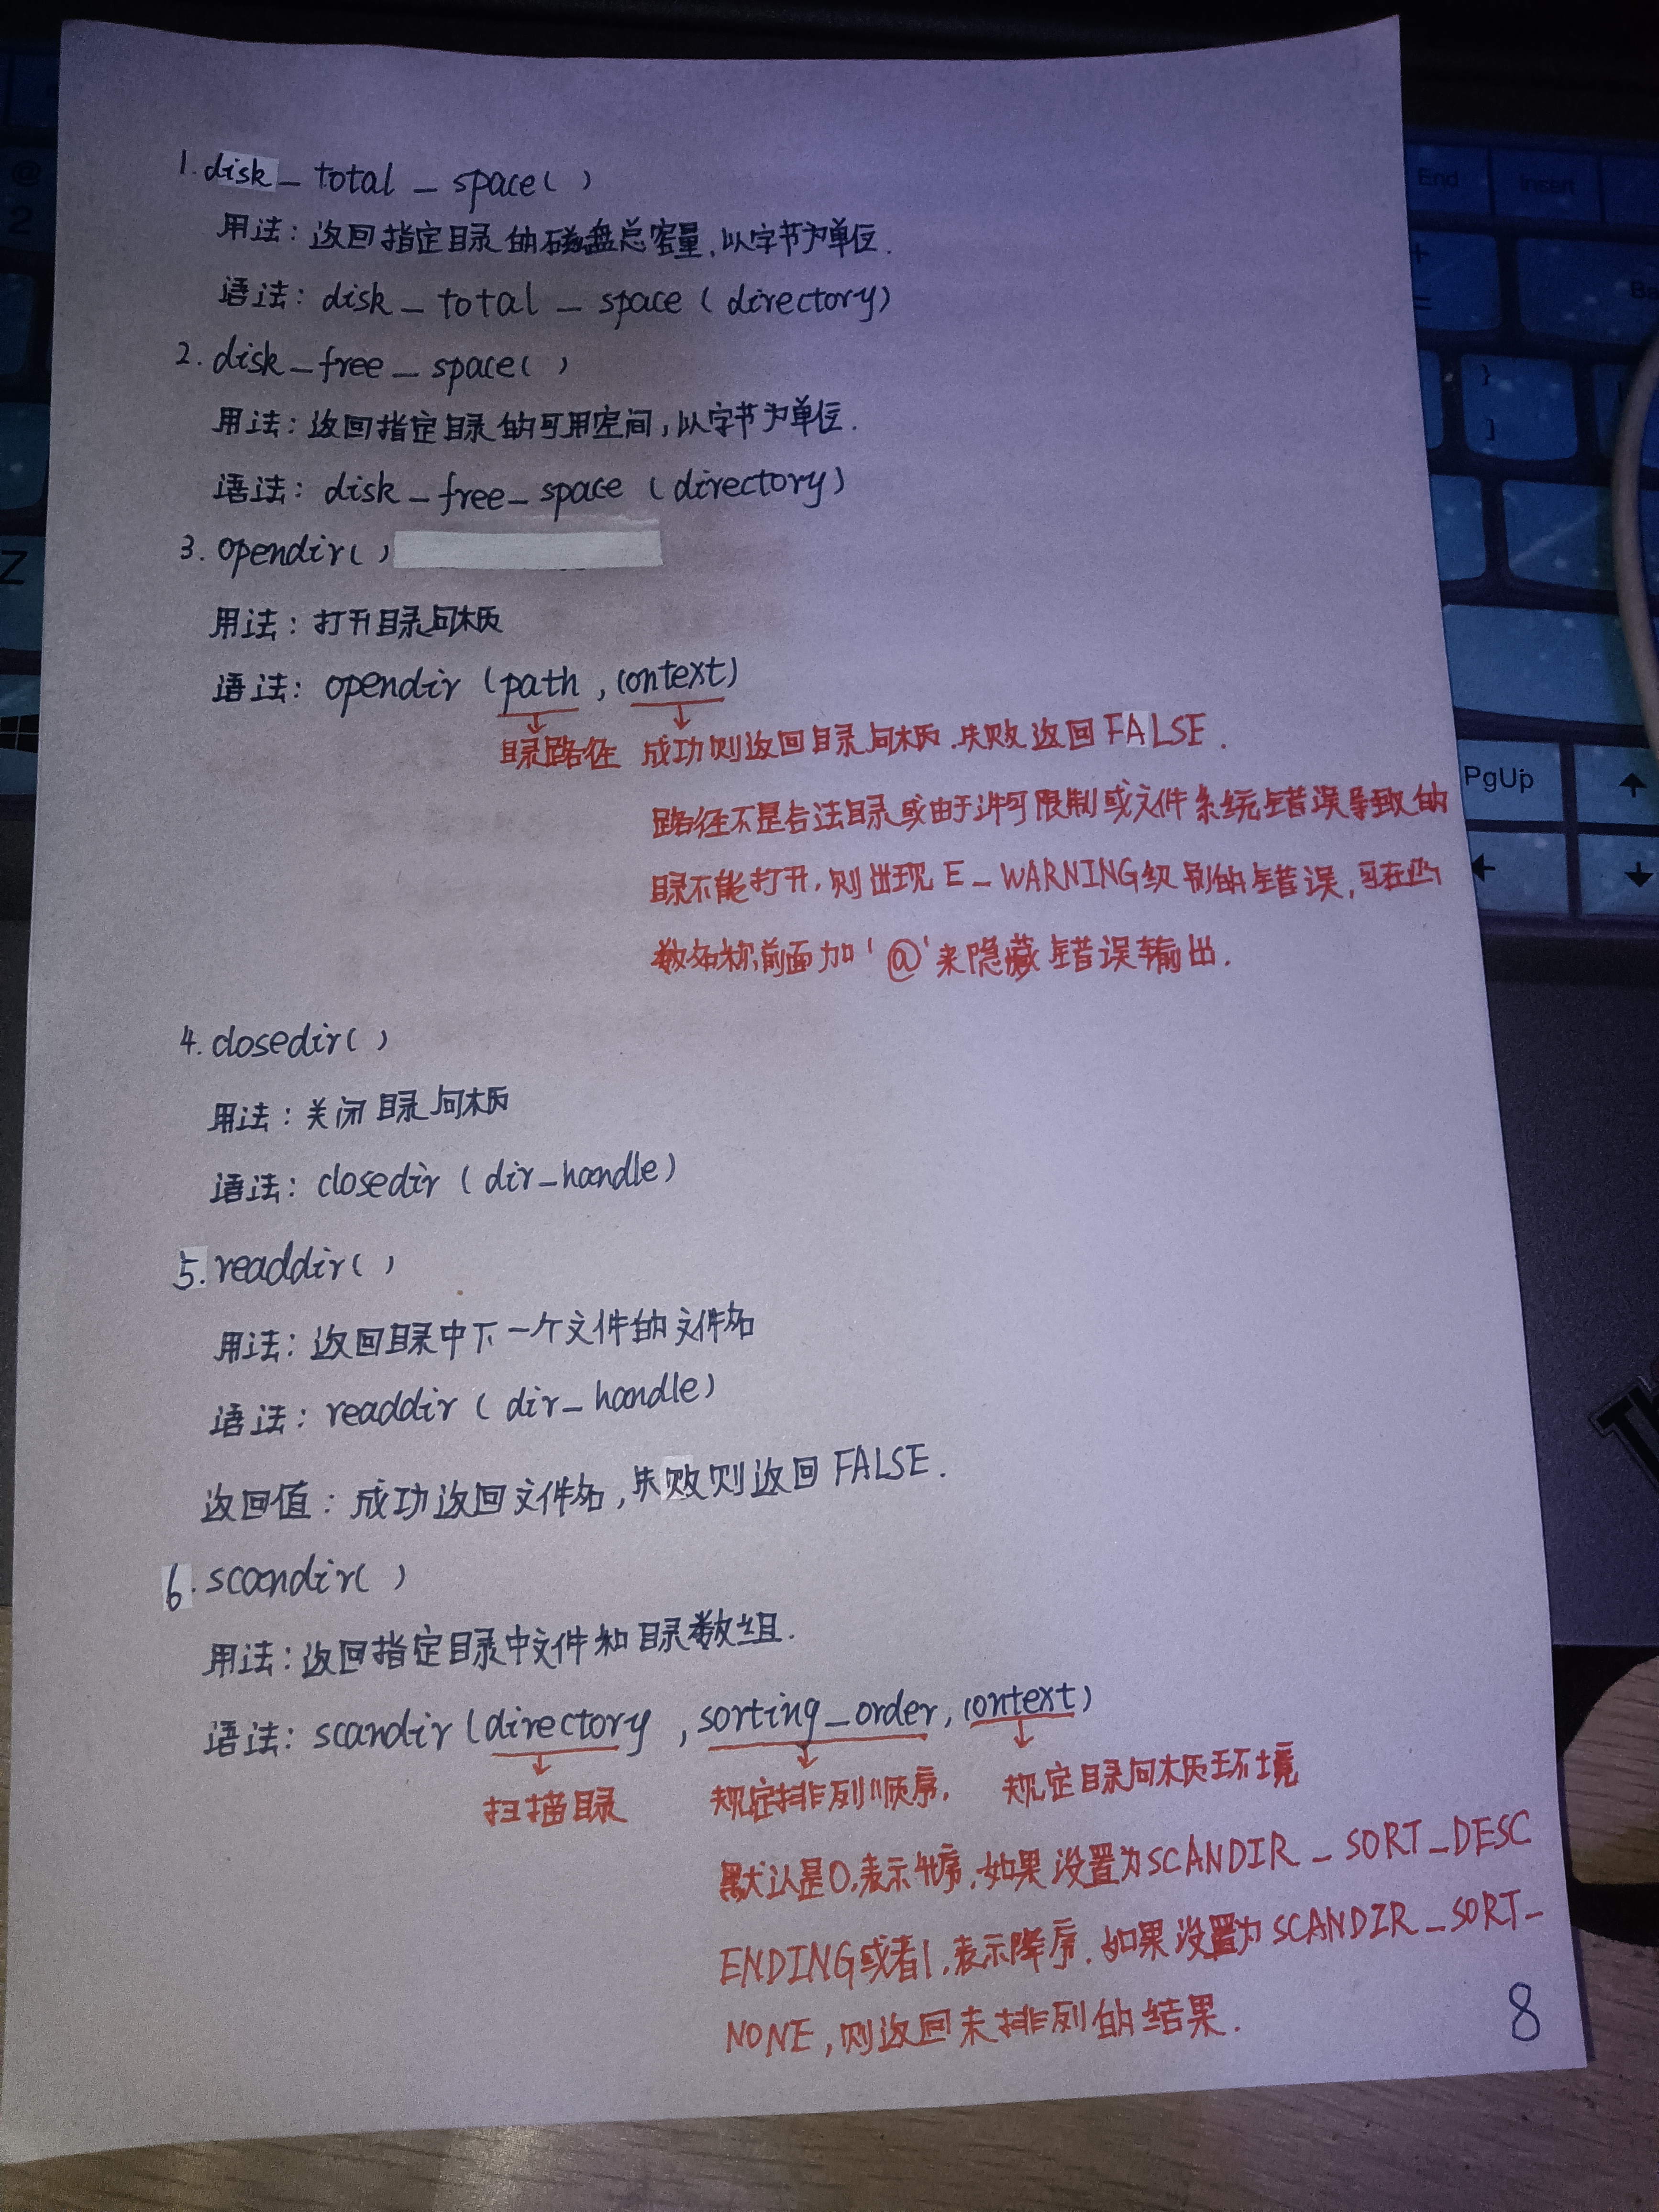 1. disk_total_space()
用法：返回指定目录的磁盘总容量，以字节为单位.
语法：disk_total_space(directory)
2. disk_free_space()
用法：返回指定目录的可用空间，以字节为单位.
语法：disk_free_space(directory)
3. opendir()
用法：打开目录句柄
语法：opendir(path, context)
目录路径 成功则返回目录句柄.失败返回FALSE.
路径不是合法目录或由于许可限制或文件系统错误导致的
目录不能打开,则出现E_WARNING级别的错误,可在函
数名称前面加'@'来隐藏错误输出.
4. closedir()
用法：关闭目录句柄
语法：closedir(dir_handle)
5. readdir()
用法：返回目录中下一个文件的文件名
语法：readdir(dir_handle)
返回值：成功返回文件名,失败则返回FALSE.
6. scandir()
用法：返回指定目录中文件和目录数组.
语法：scandir(directory, sorting_order, context)
扫描目录 规定排列顺序, 规定目录句柄环境
默认是0,表示升序,如果设置为SCANDIR_SORT_DESC
ENDING或者1,表示降序.如果设置为SCANDIR_SORT_
NONE,则返回未排列的结果.
8
@
2
Z
End
Insert
Ba
+
=
}
]
PgUp
Th